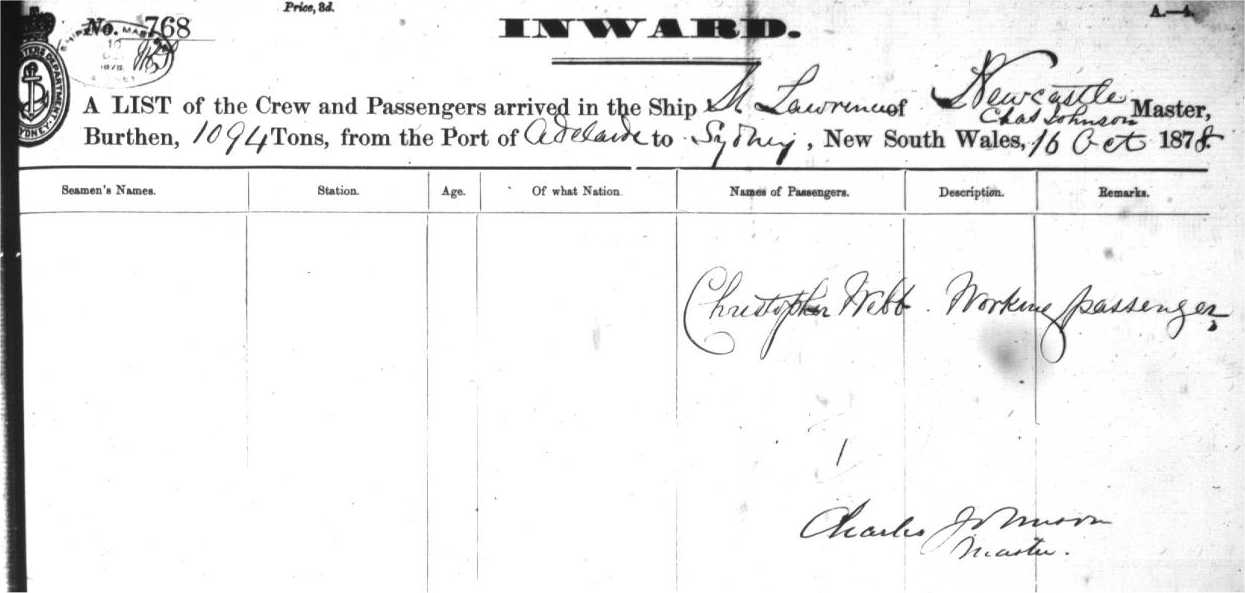 Price, 3d.
A.—4.
No. 768
INWARD.
A LIST of the Crew and Passengers arrived in the Ship St Lawrence of Newcastle
Chas Johnson Master,
Burthen, 1094 Tons, from the Port of Adelaide to Sydney, New South Wales, 16 Oct 1878.
Seamen's Names. Station. Age. Of what Nation. Names of Passengers. Description. Remarks.
Christopher Webb. Working passenger
1
Charles Johnson
Master.